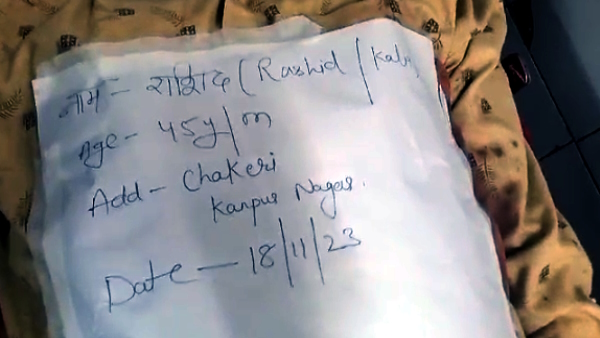 नाम - राशिद (Rashid /
Age - 45y/m
Add - Chakeri
Kanpur Nagar.
Date - 18/11/23